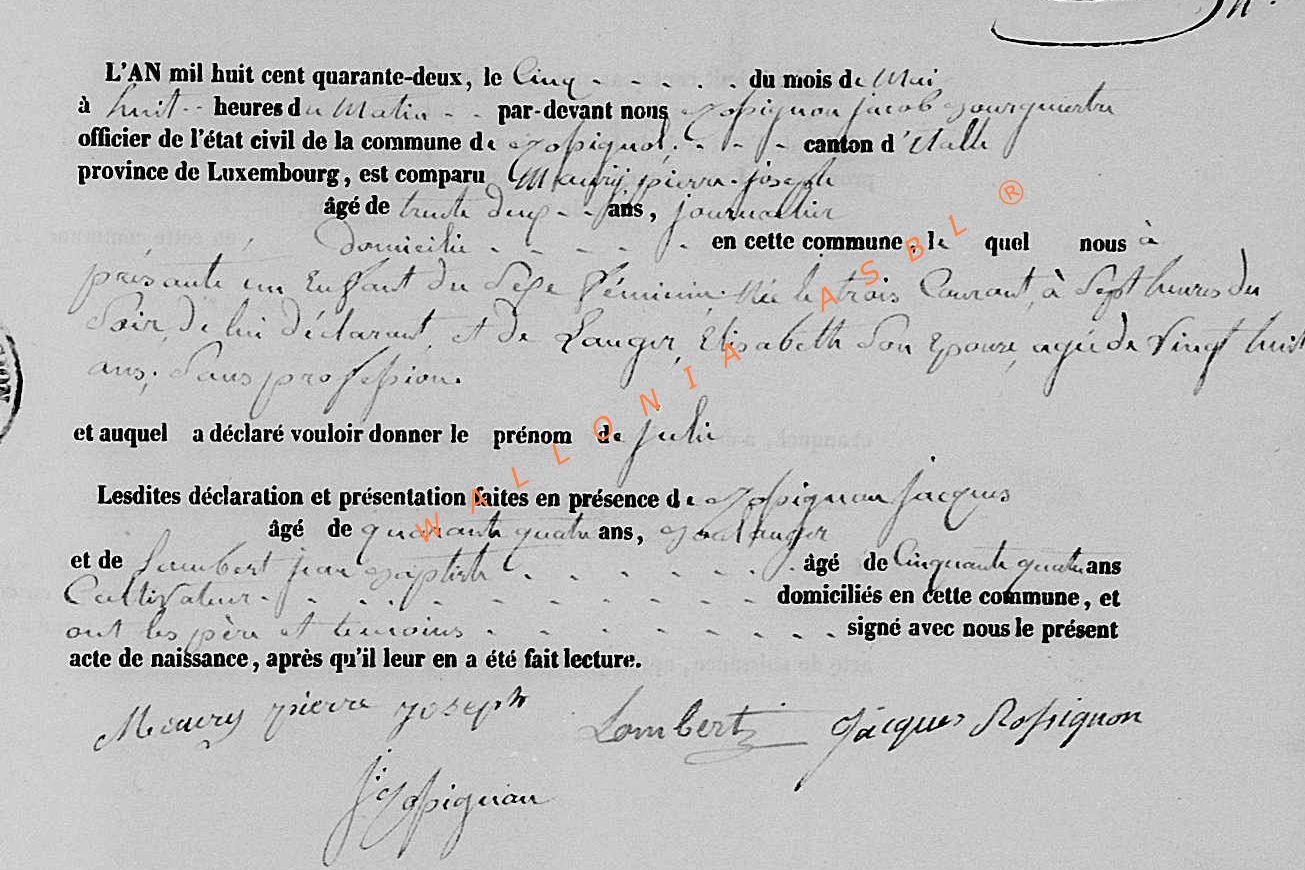 L'AN mil huit cent quarante-deux, le Cinq - - - - du mois de Mai
à huit - - heures du Matin - - par-devant nous Rossignon jacob Bourguestre
officier de l'état civil de la commune de Rossignol, - - - canton d'Etalle
province de Luxembourg, est comparu Maury pierre joseph
âgé de trente deux - - ans, journallier
domicilié - - - - - en cette commune, le quel nous à
présanté un Enfant du Sexe féminin, Née le trois Courant, à Sept heures du
Soir, de lui déclarant, et de Langer, Elisabeth Son Epouse, agée de Vingt huit
ans, Sans profession.
et auquel a déclaré vouloir donner le prénom de julie
Lesdites déclaration et présentation faites en présence de Rossignon jacques
âgé de quarante quatre ans, Boulanger
et de Lambert jean Baptiste - - - - - - âgé de Cinquante quatre ans
Cultivateur - - - - - - - - domiciliés en cette commune, et
ont les père et temoins - - - - - - - signé avec nous le présent
acte de naissance, après qu'il leur en a été fait lecture.
Meaury pierre joseph Lambert Jacques Rossignon
j Rossignon
WALLONIA ASBL ®